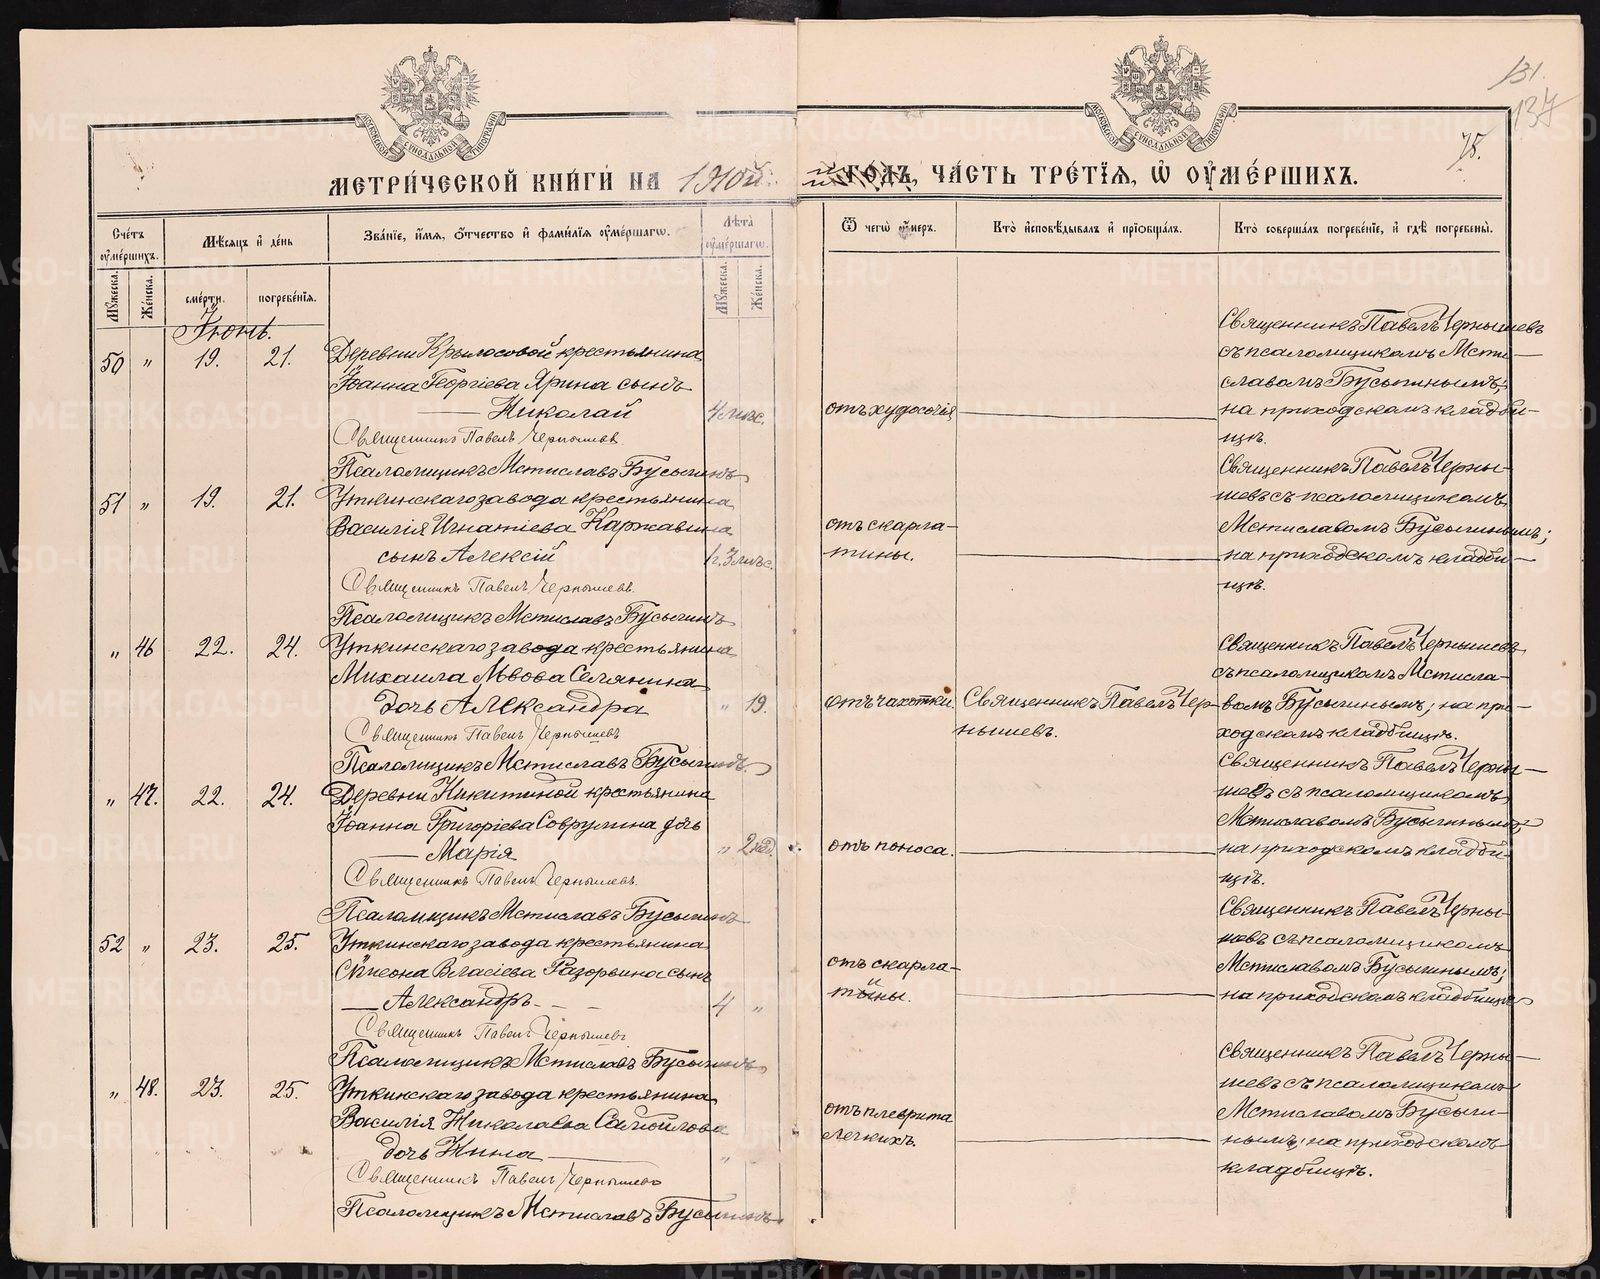 131.
137
75.
МОСКОВСКОЙ СѴНОДАЛЬНОЙ ТИПОГРАФІИ
МОСКОВСКОЙ СѴНОДАЛЬНОЙ ТИПОГРАФІИ
МЕТРИ́ЧЕСКОЙ КНИ́ГИ НА 1910й
ГОДЪ, ЧА́СТЬ ТРЕ́ТІЯ, Ѡ ОУМЕ́РШИХЪ.
Сче́тъ оуме́ршихъ.
Мѣсяцъ и де́нь
Зва́ніе, и́мя, о́тчество и фами́лія оуме́ршагѡ.
Лѣта̀ оуме́ршагѡ.
Ѿ чегѡ̀ оу́меръ.
Кто̀ исповѣ́дывалъ и пріобща́лъ.
Кто̀ соверша́лъ погребе́ніе, и гдѣ̀ погребены̀.
Мꙋ́жеска.
Же́нска.
сме́рти.
погребе́нія.
Мꙋ́жеска.
Же́нска.
Іюнь.
50 „ 19. 21. Деревни Крылосовой крестьянина
Іоанна Георгіева Ярина сынъ
Николай 4 мѣс.
Священникъ Павелъ Чернышевъ
Псаломщикъ Мстиславъ Бусыгинъ
отъ худосочія
Священникъ Павелъ Чернышевъ
съ псаломщикомъ Мсти-
славомъ Бусыгинымъ;
на приходскомъ кладби-
щѣ.
51 „ 19. 21. Уткинскаго завода крестьянина
Василія Игнатіева Каржавина
сынъ Алексій 1г. 3 мѣс.
Священникъ Павелъ Чернышевъ.
Псаломщикъ Мстиславъ Бусыгинъ
отъ скарла-
тины.
Священникъ Павелъ Черны-
шевъ съ псаломщикомъ
Мстиславомъ Бусыгинымъ;
на приходскомъ кладби-
щѣ.
„ 46 22. 24. Уткинскаго завода крестьянина
Михаила Львова Селянина
дочь Александра „ 19.
Священникъ Павелъ Чернышевъ
Псаломщикъ Мстиславъ Бусыгинъ.
отъ чахотки.
Священникъ Павелъ Чер-
нышевъ.
Священникъ Павелъ Чернышевъ
съ псаломщикомъ Мстисла-
вомъ Бусыгинымъ; на при-
ходскомъ кладбищѣ.
„ 47. 22. 24. Деревни Никитиной крестьянина
Іоанна Григоріева Соврулина дочь
Марія „ 2 нед.
Священникъ Павелъ Чернышевъ.
Псаломщикъ Мстиславъ Бусыгинъ
отъ поноса.
Священникъ Павелъ Черны-
шевъ съ псаломщикомъ
Мстиславомъ Бусыгинымъ;
на приходскомъ кладби-
щѣ.
52 „ 23. 25. Уткинскаго завода крестьянина
Симеона Власіева Разорвина сынъ
Александръ 4 „
Священникъ Павелъ Чернышевъ
Псаломщикъ Мстиславъ Бусыгинъ
отъ скарла-
тины.
Священникъ Павелъ Черны-
шевъ съ псаломщикомъ
Мстиславомъ Бусыгинымъ;
на приходскомъ кладбищѣ
„ 48. 23. 25. Уткинскаго завода крестьянина
Василія Николаева Самойлова
дочь Нина „
Священникъ Павелъ Чернышевъ
Псаломщикъ Мстиславъ Бусыгинъ.
отъ плеврита
легкихъ.
Священникъ Павелъ Черны-
шевъ съ псаломщикомъ
Мстиславомъ Бусыги-
нымъ; на приходскомъ
кладбищѣ.
METRIKI.GASO-URAL.RU